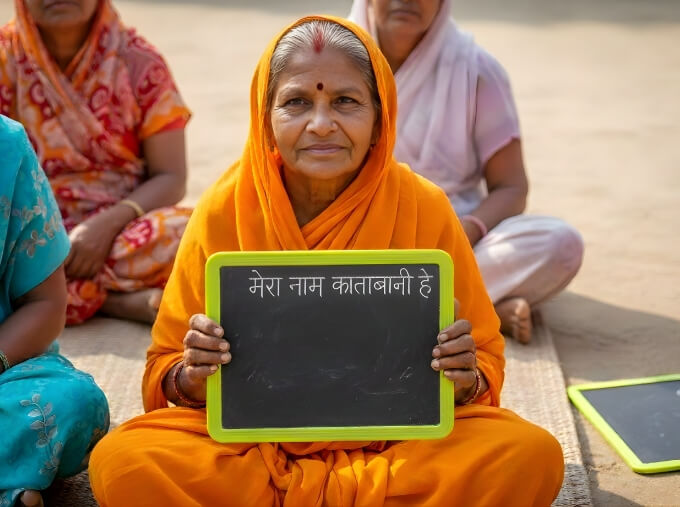 मेरा नाम काताबानी हे